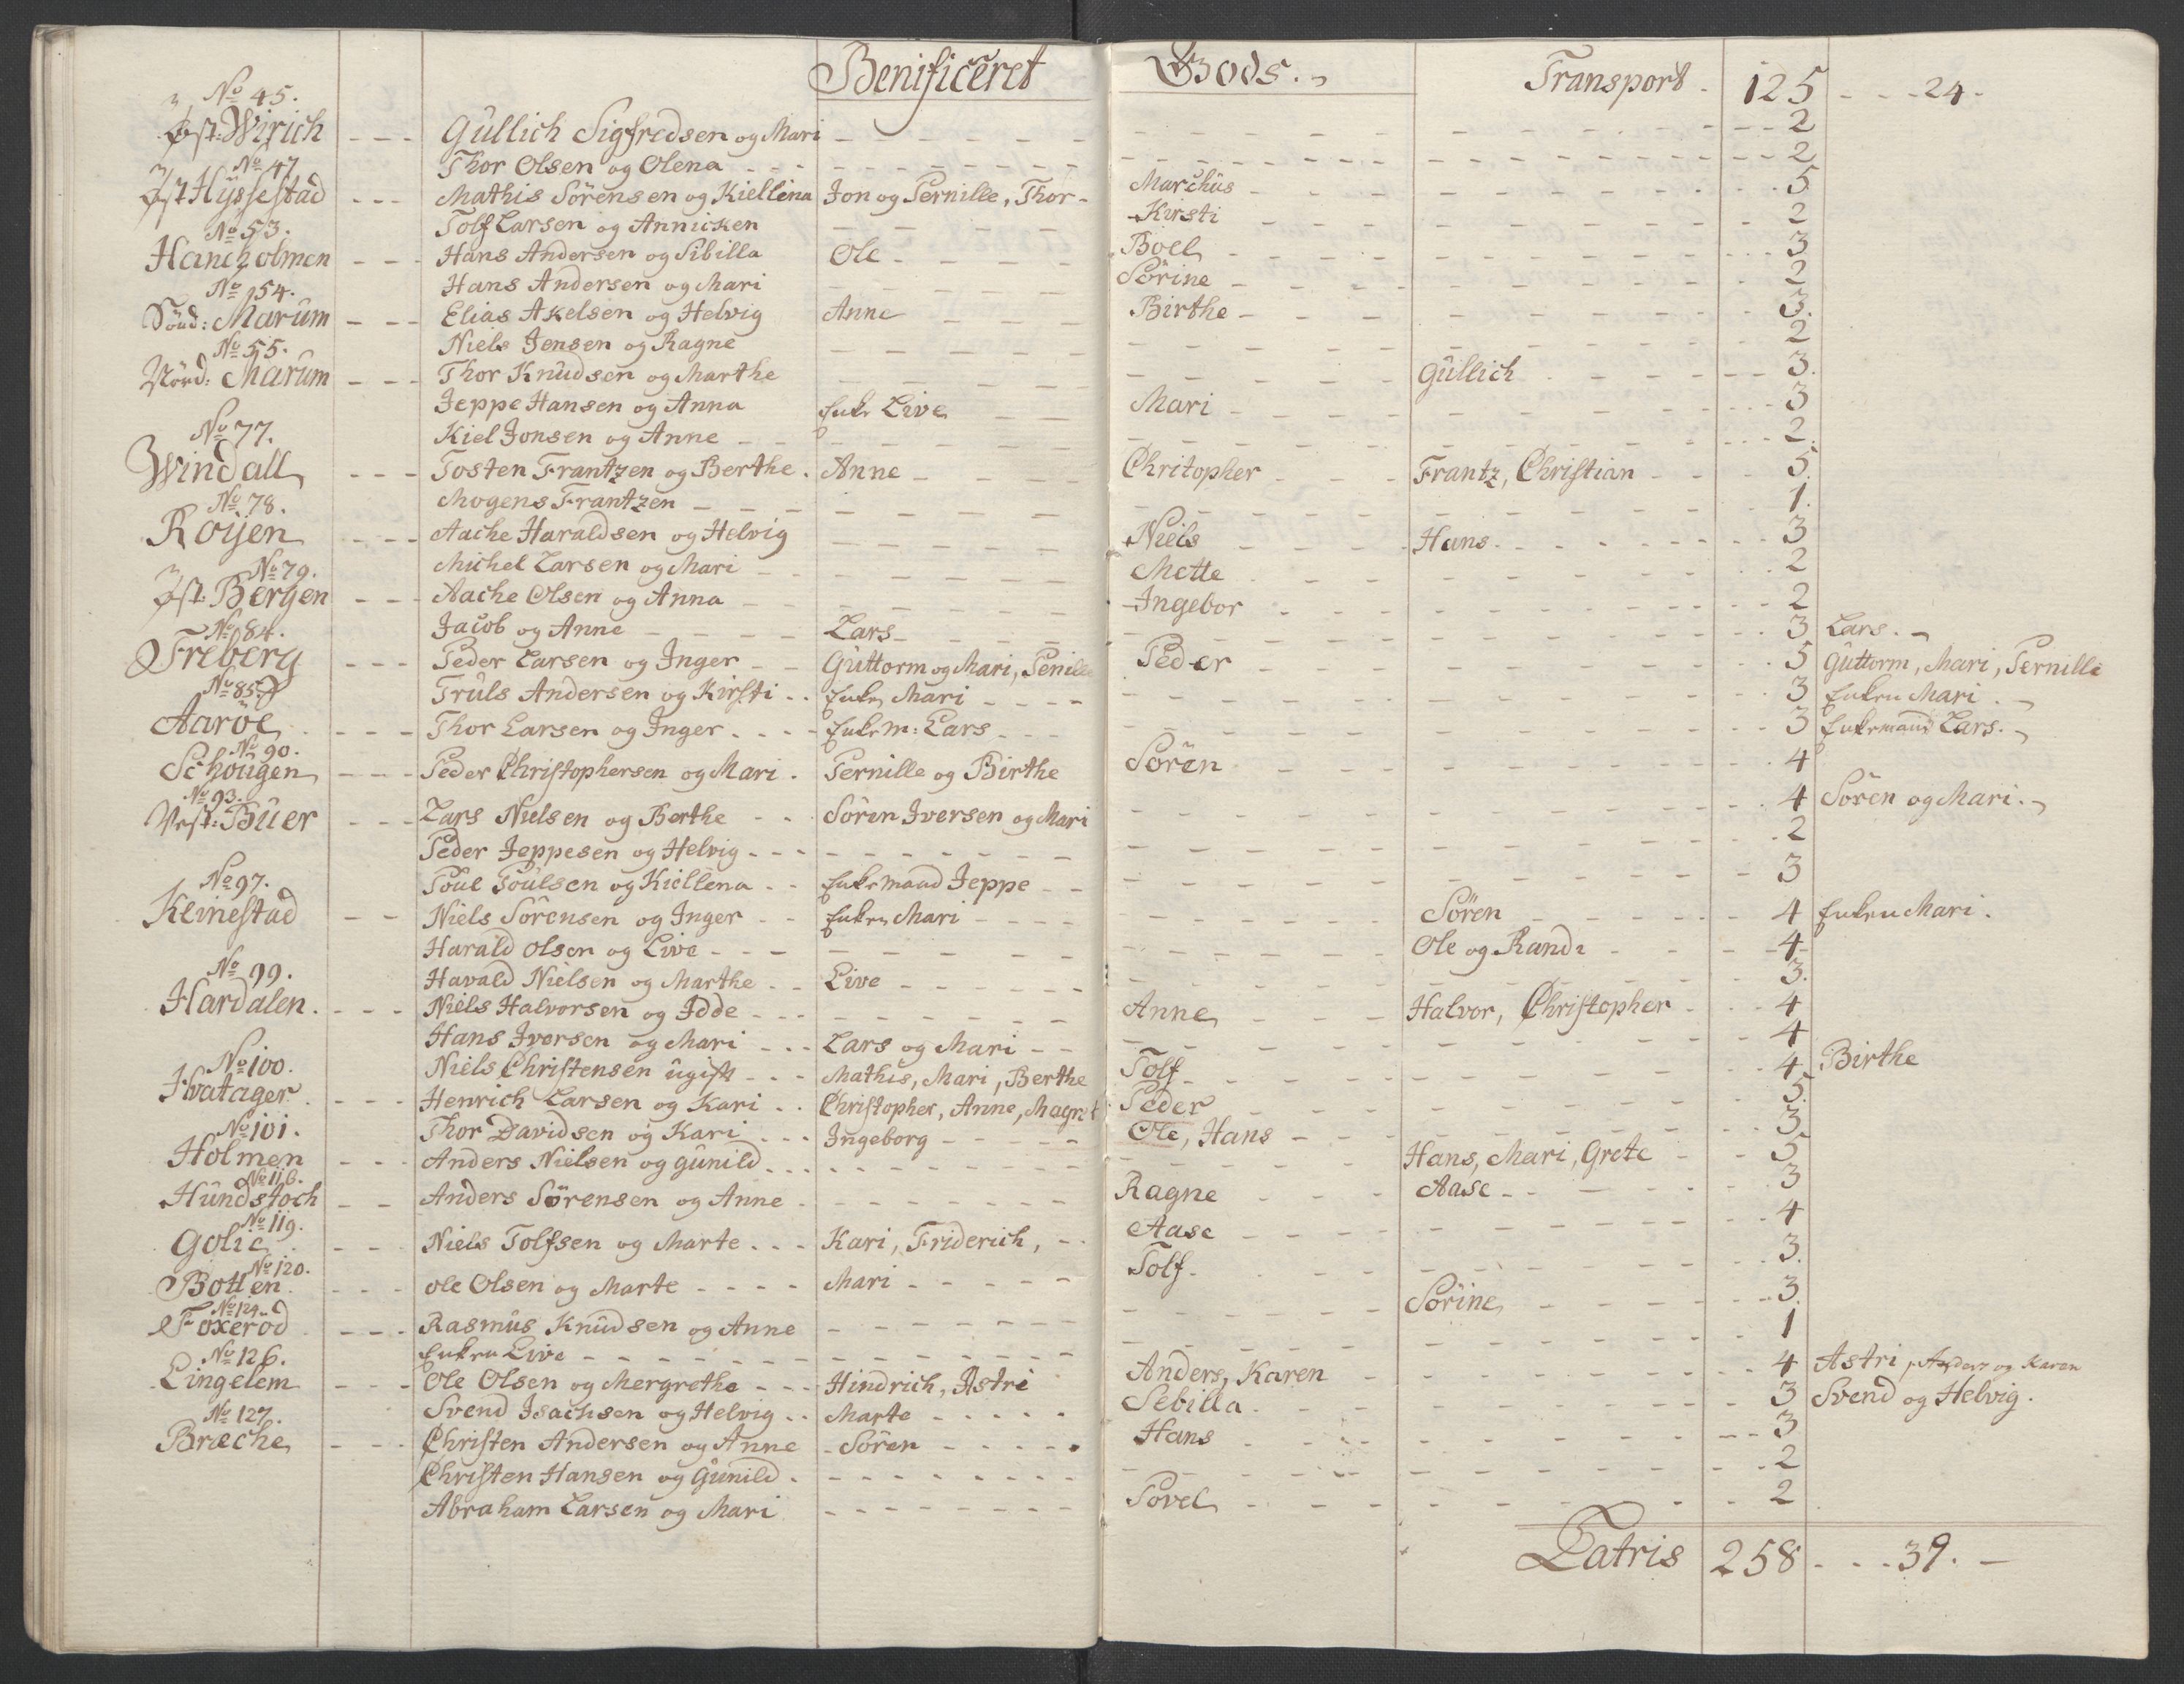 Benificeret Gods. Transport 125 24
No 45.
Øst: Wirich Gullich Sigfredsen og Mari 2
Thor Olsen og Olena 2
No 47
Øst Hÿssestad Mathis Sörensen og Kiellena Jon og Pernille, Thor Marchus 5
Tolf Larsen og Annicken Kirsti 2
No 53.
Hancholmen Hans Andersen og Sibilla Ole Boel 3
Hans Andersen og Mari Sörine 2
No 54.
Sönd: Marum Elias Akelsen og Helvig Anne Birthe 3.
Niels Jensen og Ragne 2
No 55.
Nörd: Marum Thor Knudsen og Marthe Gullich 3.
Jeppe Hansen og Anna Enke Live Mari 3
No 77.
Kiel Jonsen og Anne 2.
Windall Tosten Frantzen og Berthe Anne Chritopher Frantz, Christian 5
Mogens Frantzen 1.
No 78.
Roijen Aache Haraldsen og Helvig Niels Hans 3
Michel Larsen og Mari Mette 2
No 79.
Øst: Bergen Aache Olsen og Anna Ingebor 2
Jacob og Anne Lars 3 Lars.
No 84.
Freberg Peder Larsen og Inger Guttorm og Mari, Penille Peder 5 Guttorm, Mari, Pernille
Truls Andersen og Kirsti Enken Mari 3 Enken Mari
No 85.
Aaröe Thor Larsen og Inger Enkem: Lars 3 Enkemand Lars.
No 90.
Schougen Peder Christophersen og Mari Pernille og Birthe Sören 4
No 93.
Vest: Buer Lars Nielsen og Berthe Sören Iversen og Mari 4 Sören og Mari.
Peder Jeppesen og Helvig 2
Poul Poulsen og Kiellena Enkemand Jeppe 3
No 97.
Kleinestad Niels Sörensen og Inger Enken Mari Sören 4 Enken Mari.
Harald Olsen og Live Ole og Randi 4
Havald Nielsen og Marthe Live 3.
No 99.
Hardalen. Niels Halvorsen og Idde Anne Halvor, Christopher 4
Hans Iversen og Mari Lars og Mari 4
Niels Christensen ugift Mathis, Mari, Berthe Tolf 4 Birthe
No 100.
Hvatager Henrich Larsen og Kari Christopher, Anne, Magret Peder 5.
Thor Davidsen og Kari Ingeborg Ole, Hans 3
No 101.
Holmen Anders Nielsen og Gunild Hans, Mari, Grete 5
No 116.
Hundstoch Anders Sörensen og Anne Ragne Aase 3
No 119.
Golie Niels Tolfsen og Marte Kari, Friderich, Aase 4
No 120.
Botten Ole Olsen og Marte Mari Tolf 3.
No 124.
Foxeröd Rasmus Knudsen og Anne Sörine 3.
Enken Live 1
No 126.
Lingelem Ole Olsen og Mergrethe Hindrich, Astri Anders, Karen 4 Astri, Anders og Karen
Svend Isachsen og Helvig Marte Sebilla 3 Svend og Helvig.
No 127.
Bræche Christen Andersen og Anne Sören Hans 3
Christen Hansen og Gunild 2
Abraham Larsen og Mari Povel 2
Latris 258 39.